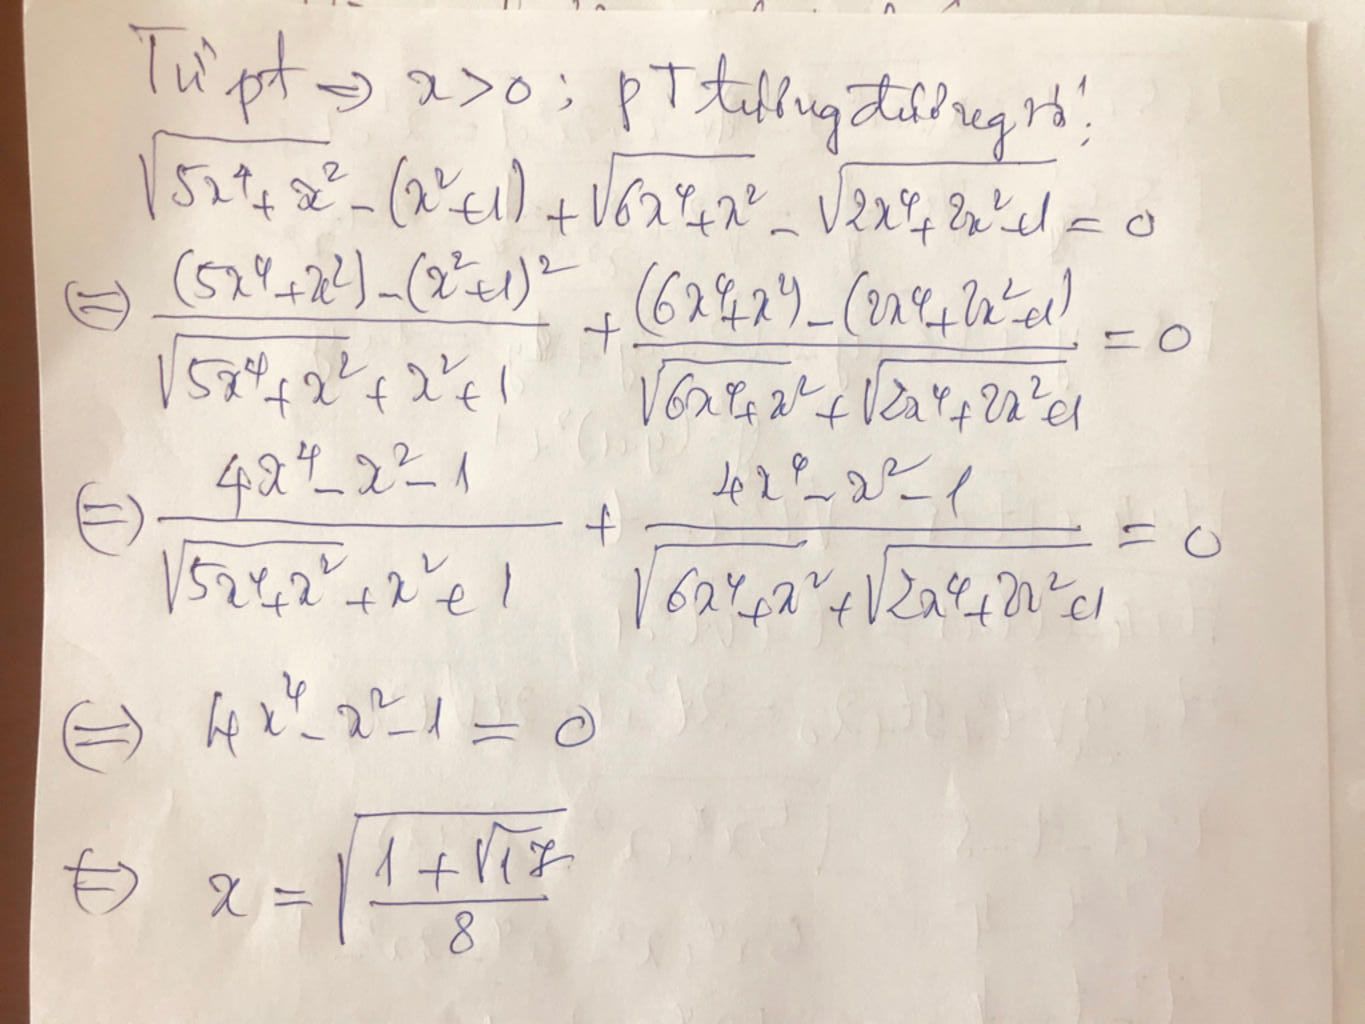 Từ pt => x > 0 ; pT tương đương với:
√(5x⁴ + x²) - (x² + 1) + √(6x⁴ + x²) - √(2x⁴ + 2x² + 1) = 0
(=) ((5x⁴ + x²) - (x² + 1)²)/(√(5x⁴ + x²) + x² + 1) + ((6x⁴ + x²) - (2x⁴ + 2x² + 1))/(√(6x⁴ + x²) + √(2x⁴ + 2x² + 1)) = 0
(=) (4x⁴ - x² - 1)/(√(5x⁴ + x²) + x² + 1) + (4x⁴ - x² - 1)/(√(6x⁴ + x²) + √(2x⁴ + 2x² + 1)) = 0
(=) 4x⁴ - x² - 1 = 0
(=) x = √((1 + √17)/8)